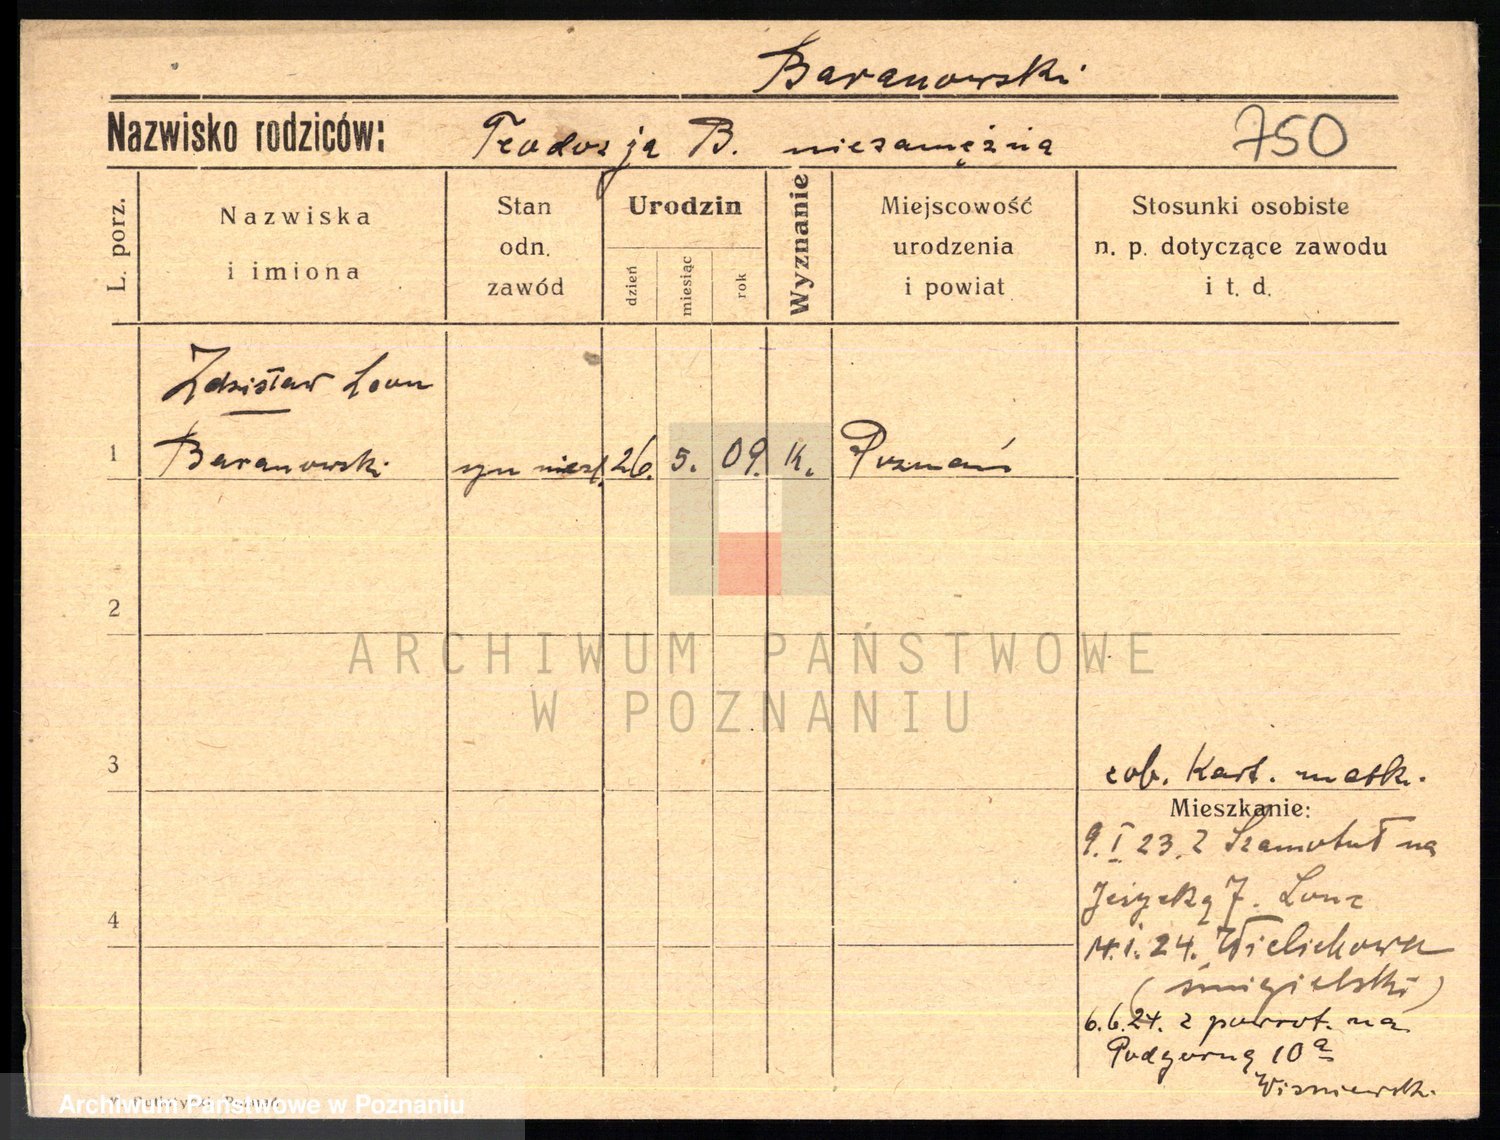 Baranowski
Nazwisko rodziców: Teodozja B. niezamężna 750
L. porz.
Nazwiska
i imiona
Stan
odn.
zawód
Urodzin
dzień
miesiąc
rok
Wyznanie
Miejscowość
urodzenia
i powiat
Stosunki osobiste
n. p. dotyczące zawodu
i t. d.
Zdzisław Leon
1 Baranowski syn nieśl. 26. 5. 09. K. Poznań
2
ARCHIWUM PAŃSTWOWE
W POZNANIU
3
zob. Kart. matk.
Mieszkanie:
9. I 23. z Szamotuł na
Jeżycką 7.
4
14.1.24. Wielichowa
(śmigielski)
6.6.24. z powrot. na
Podgórną 10a
Wiśniewsk.
Archiwum Państwowe w Poznaniu